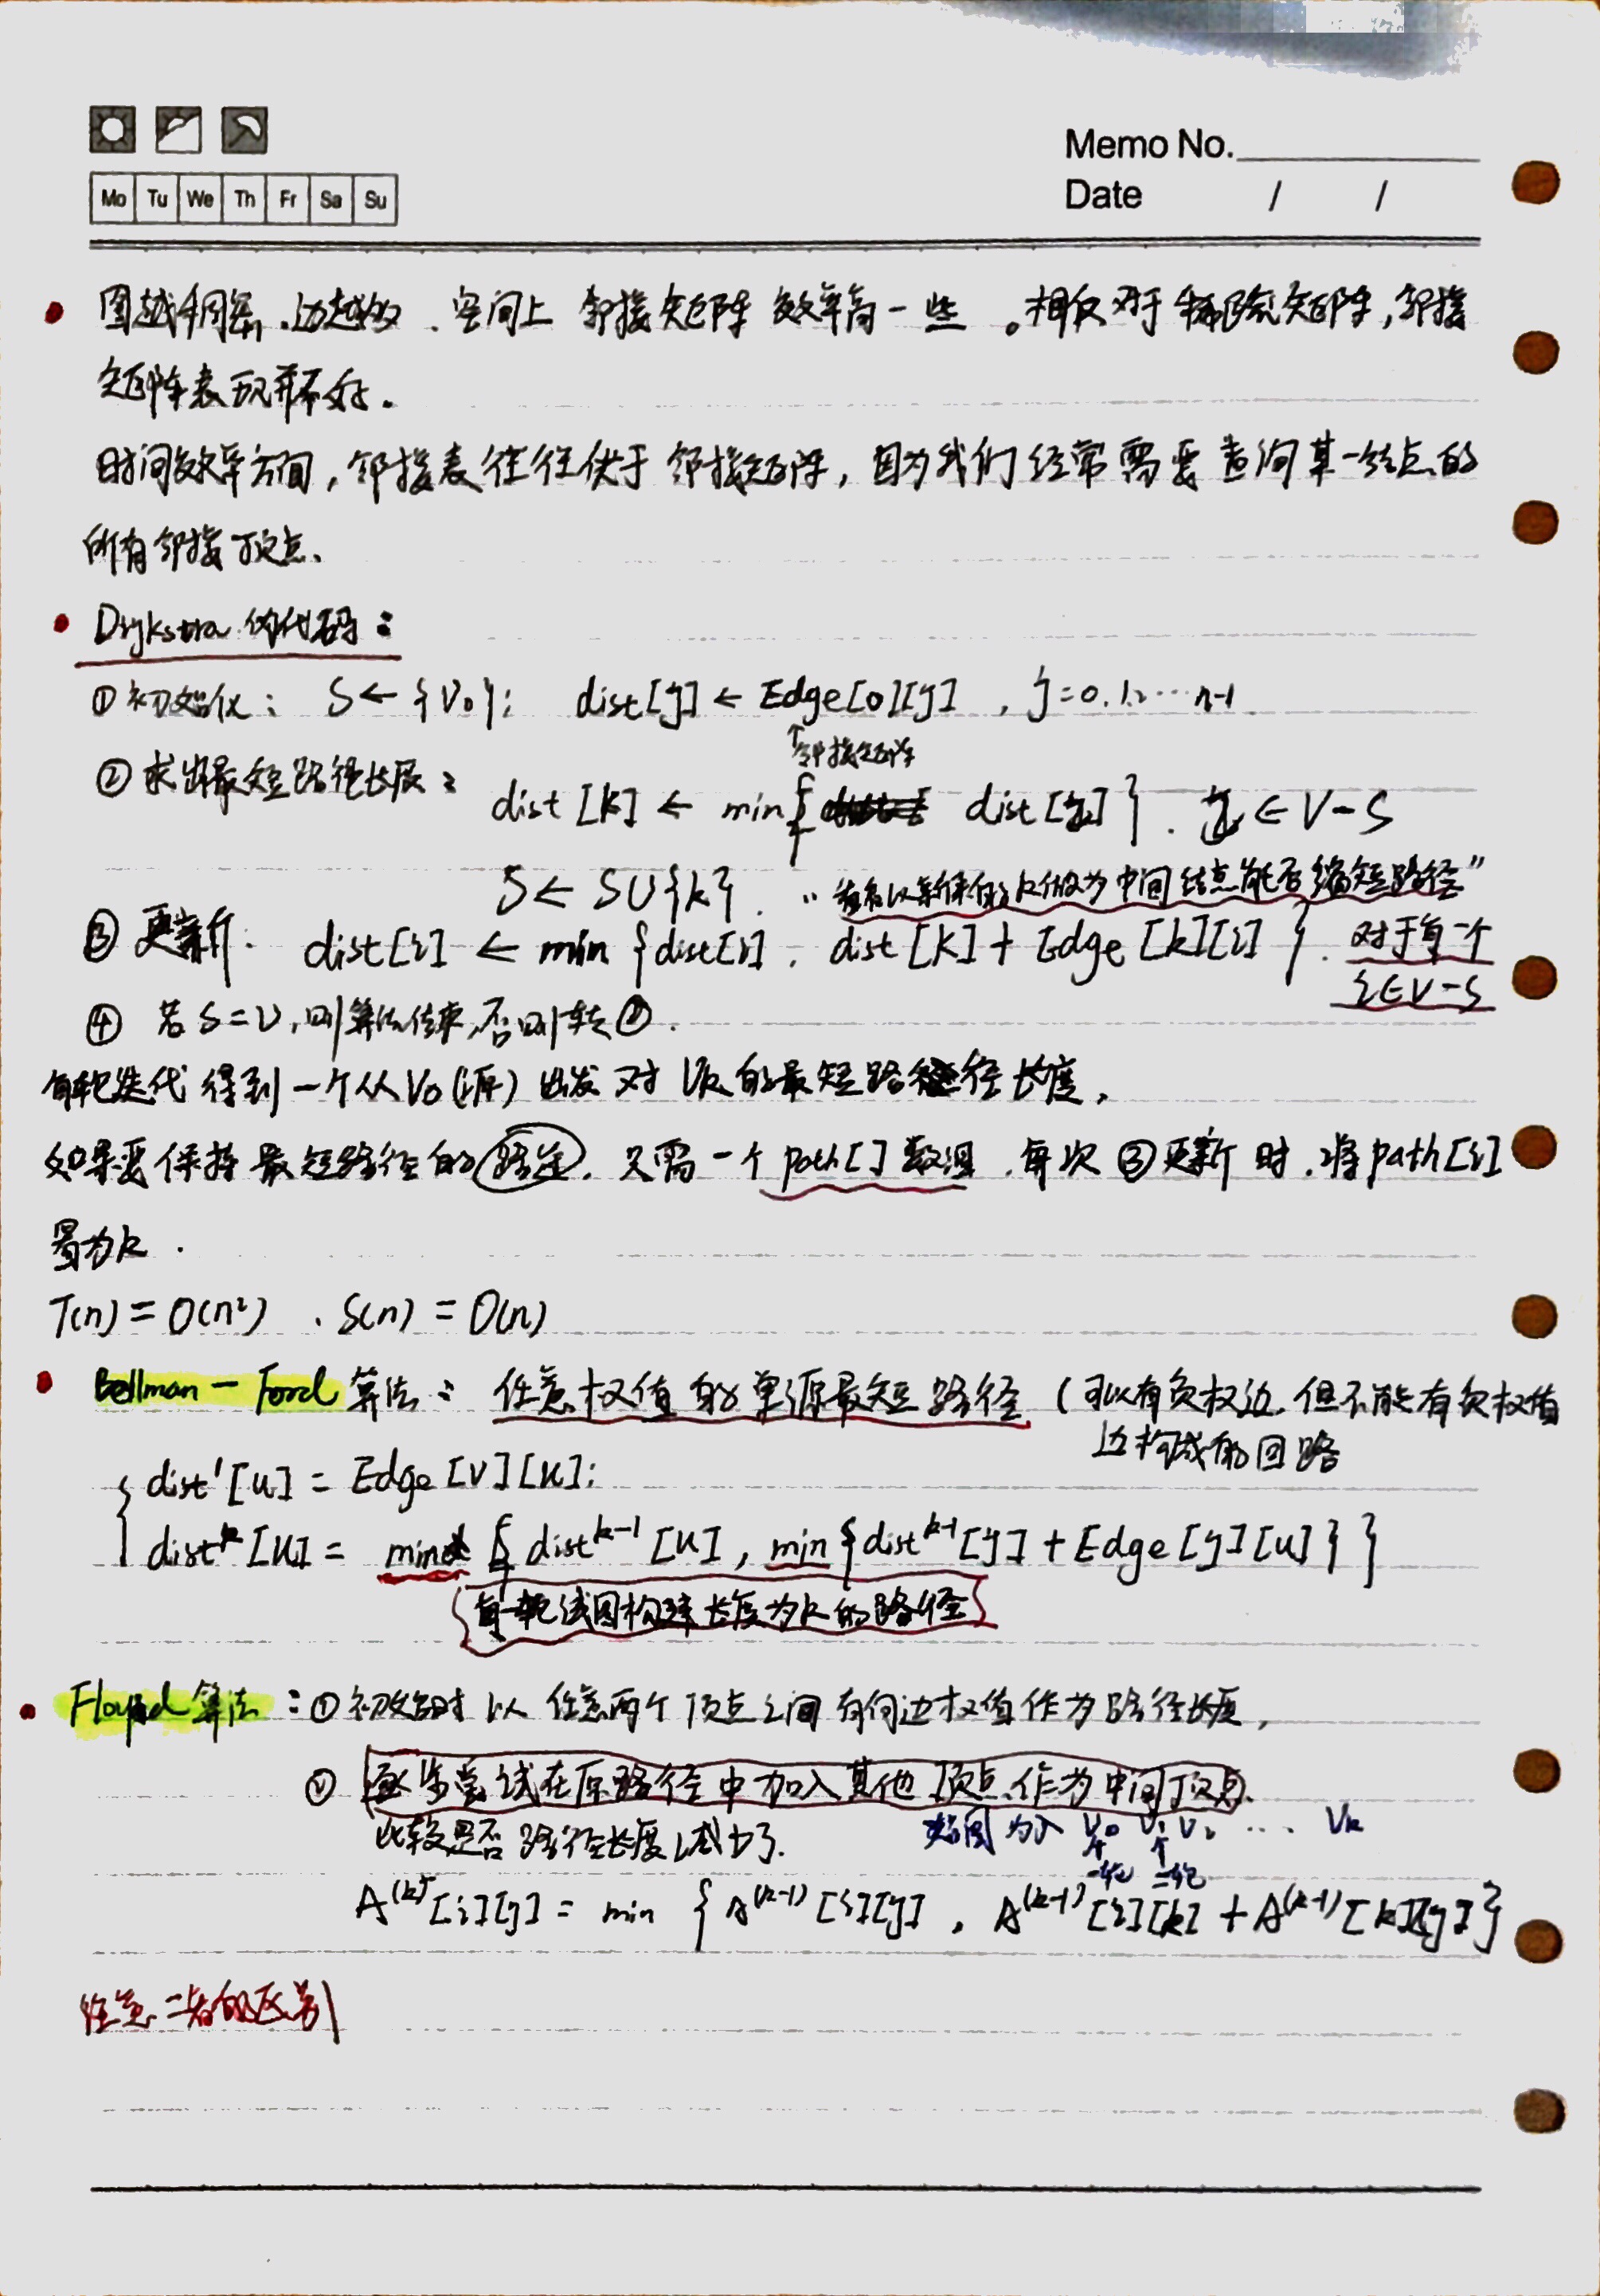 Memo No.
Mo Tu We Th Fr Sa Su
Date / /
图越稠密,边越多,空间上 邻接矩阵 效率高一些 。相反对于稀疏矩阵,邻接
矩阵表现并不好.
时间效率方面,邻接表往往优于 邻接矩阵,因为我们经常需要查询某一结点的
所有邻接顶点.
Dijkstra 伪代码:
①初始化: S←{V0}; dist[j] ← Edge[0][j] , j=0.1.…n-1
↑邻接矩阵
②求出最短路径长度:
dist[k] ← min{ dist[j] } . j ∈ V-S
S ← S∪{k}. “ 以新来的k做为中间结点能否缩短路径”
③更新. dist[i] ← min {dist[i] . dist[k]+Edge[k][i] } . 对于每一个
i∈V-S
④ 若S=V,则算法结束,否则转②.
每轮迭代得到一个从V0(源)出发对Vk的最短路径长度,
如果要保持最短路径的路径. 只需一个path[]数组 .每次③更新时.将path[i]
置为k .
T(n)=O(n²) . S(n)=O(n)
Bellman-Ford算法: 任意权值的单源最短路径 (可以有负权边.但不能有负权值
边构成的回路
dist¹[u] = Edge[v][u];
distᵏ[u] = min { distᵏ⁻¹[u] , min{distᵏ⁻¹[j] + Edge[j][u] } }
每轮试图构建长度为k的路径
Floyed算法:①初始时以任意两个顶点之间有向边权值作为路径长度,
② 逐步尝试在原路径中加入其他顶点作为中间顶点.
比较是否路径长度减少了. 加入 V0 V1 V2 … Vk
一轮 二轮
A⁽ᵏ⁾[i][j] = min { A⁽ᵏ⁻¹⁾[i][j] , A⁽ᵏ⁻¹⁾[i][k] + A⁽ᵏ⁻¹⁾[k][j] }
注意二者的区别